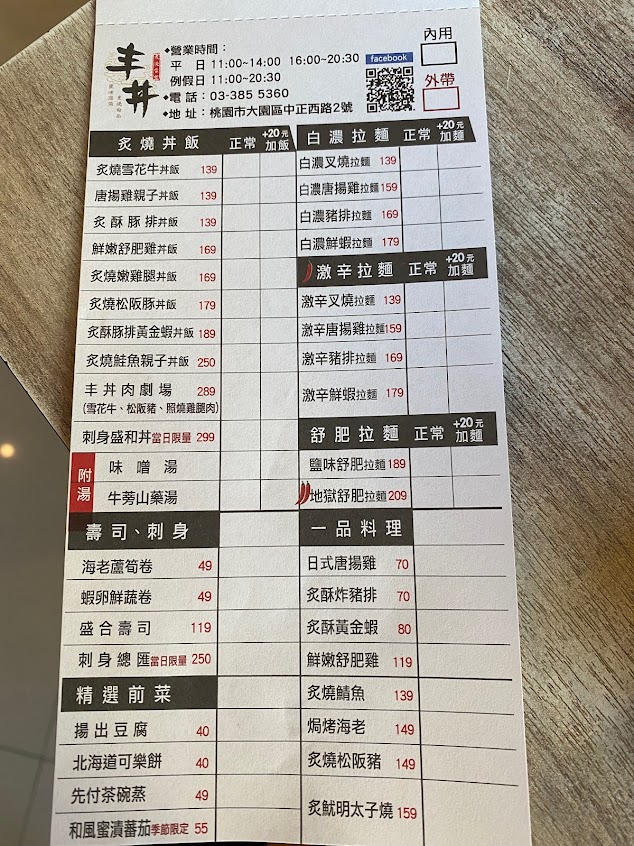 丰丼
•營業時間：
平 日 11:00~14:00 16:00~20:30
例假日 11:00~20:30
•電話：03-385 5360
•地址：桃園市大園區中正西路2號
facebook
內用
外帶
炙燒丼飯 正常 +20元加飯
炙燒雪花牛丼飯 139
唐揚雞親子丼飯 139
炙酥豚排丼飯 139
鮮嫩舒肥雞丼飯 169
炙燒嫩雞腿丼飯 169
炙燒松阪豚丼飯 179
炙酥豚排黃金蝦丼飯 189
炙燒鮭魚親子丼飯 250
丰丼肉劇場 289
(雪花牛、松阪豬、照燒雞腿肉)
刺身盛和丼當日限量 299
附湯
味噌湯
牛蒡山藥湯
壽司、刺身
海老蘆筍卷 49
蝦卵鮮蔬卷 49
盛合壽司 119
刺身總匯當日限量 250
精選前菜
揚出豆腐 40
北海道可樂餅 40
先付茶碗蒸 49
和風蜜漬蕃茄季節限定 55
白濃拉麵 正常 +20元加麵
白濃叉燒拉麵 139
白濃唐揚雞拉麵 159
白濃豬排拉麵 169
白濃鮮蝦拉麵 179
激辛拉麵 正常 +20元加麵
激辛叉燒拉麵 139
激辛唐揚雞拉麵 159
激辛豬排拉麵 169
激辛鮮蝦拉麵 179
舒肥拉麵 正常 +20元加麵
鹽味舒肥拉麵 189
地獄舒肥拉麵 209
一品料理
日式唐揚雞 70
炙酥炸豬排 70
炙酥黃金蝦 80
鮮嫩舒肥雞 119
炙燒鯖魚 139
焗烤海老 149
炙燒松阪豬 149
炙魷明太子燒 159